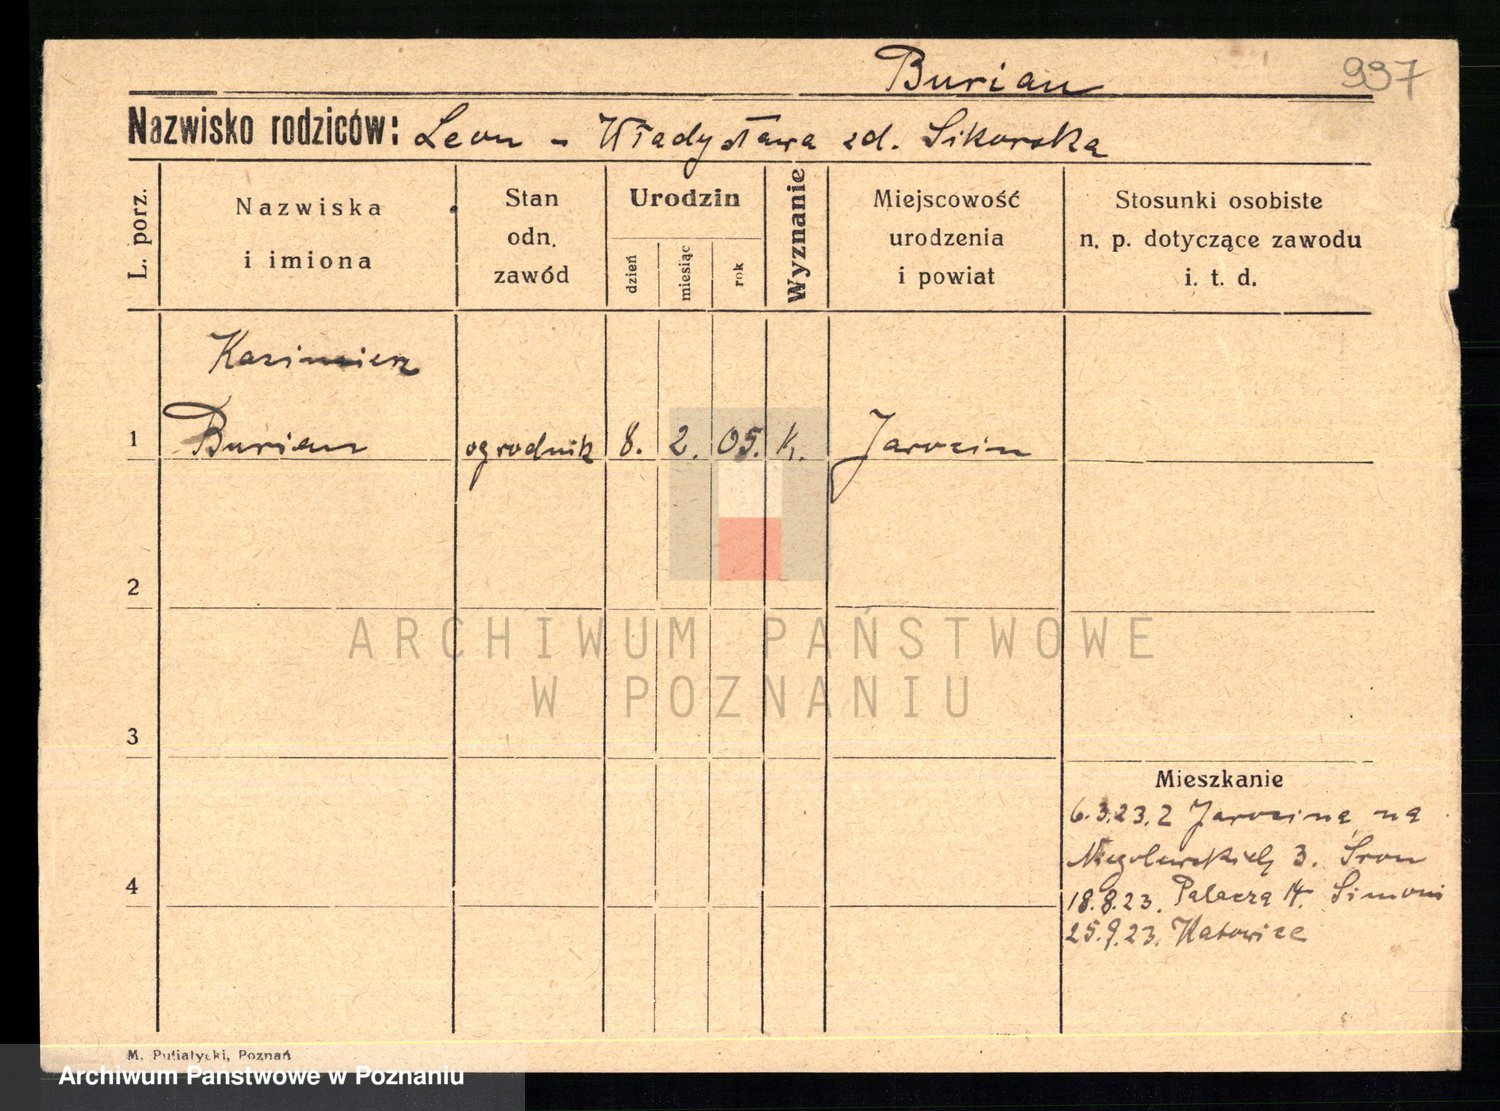 Burian 937
Nazwisko rodziców: Leon - Władysława zd. Sikorska
L. porz.
Nazwiska
i imiona
Stan
odn.
zawód
Urodzin
dzień
miesiąc
rok
Wyznanie
Miejscowość
urodzenia
i powiat
Stosunki osobiste
n. p. dotyczące zawodu
i. t. d.
Kazimierz
1 Burian ogrodnik 8. 2. 05. k. Jarocin
2
ARCHIWUM PAŃSTWOWE
W POZNANIU
3
Mieszkanie
6.3.23. z Jarocina na
3.
4
18.8.23. Palacza Simoni
25.9.23. Katowice
M. Putiatycki, Poznań
Archiwum Państwowe w Poznaniu